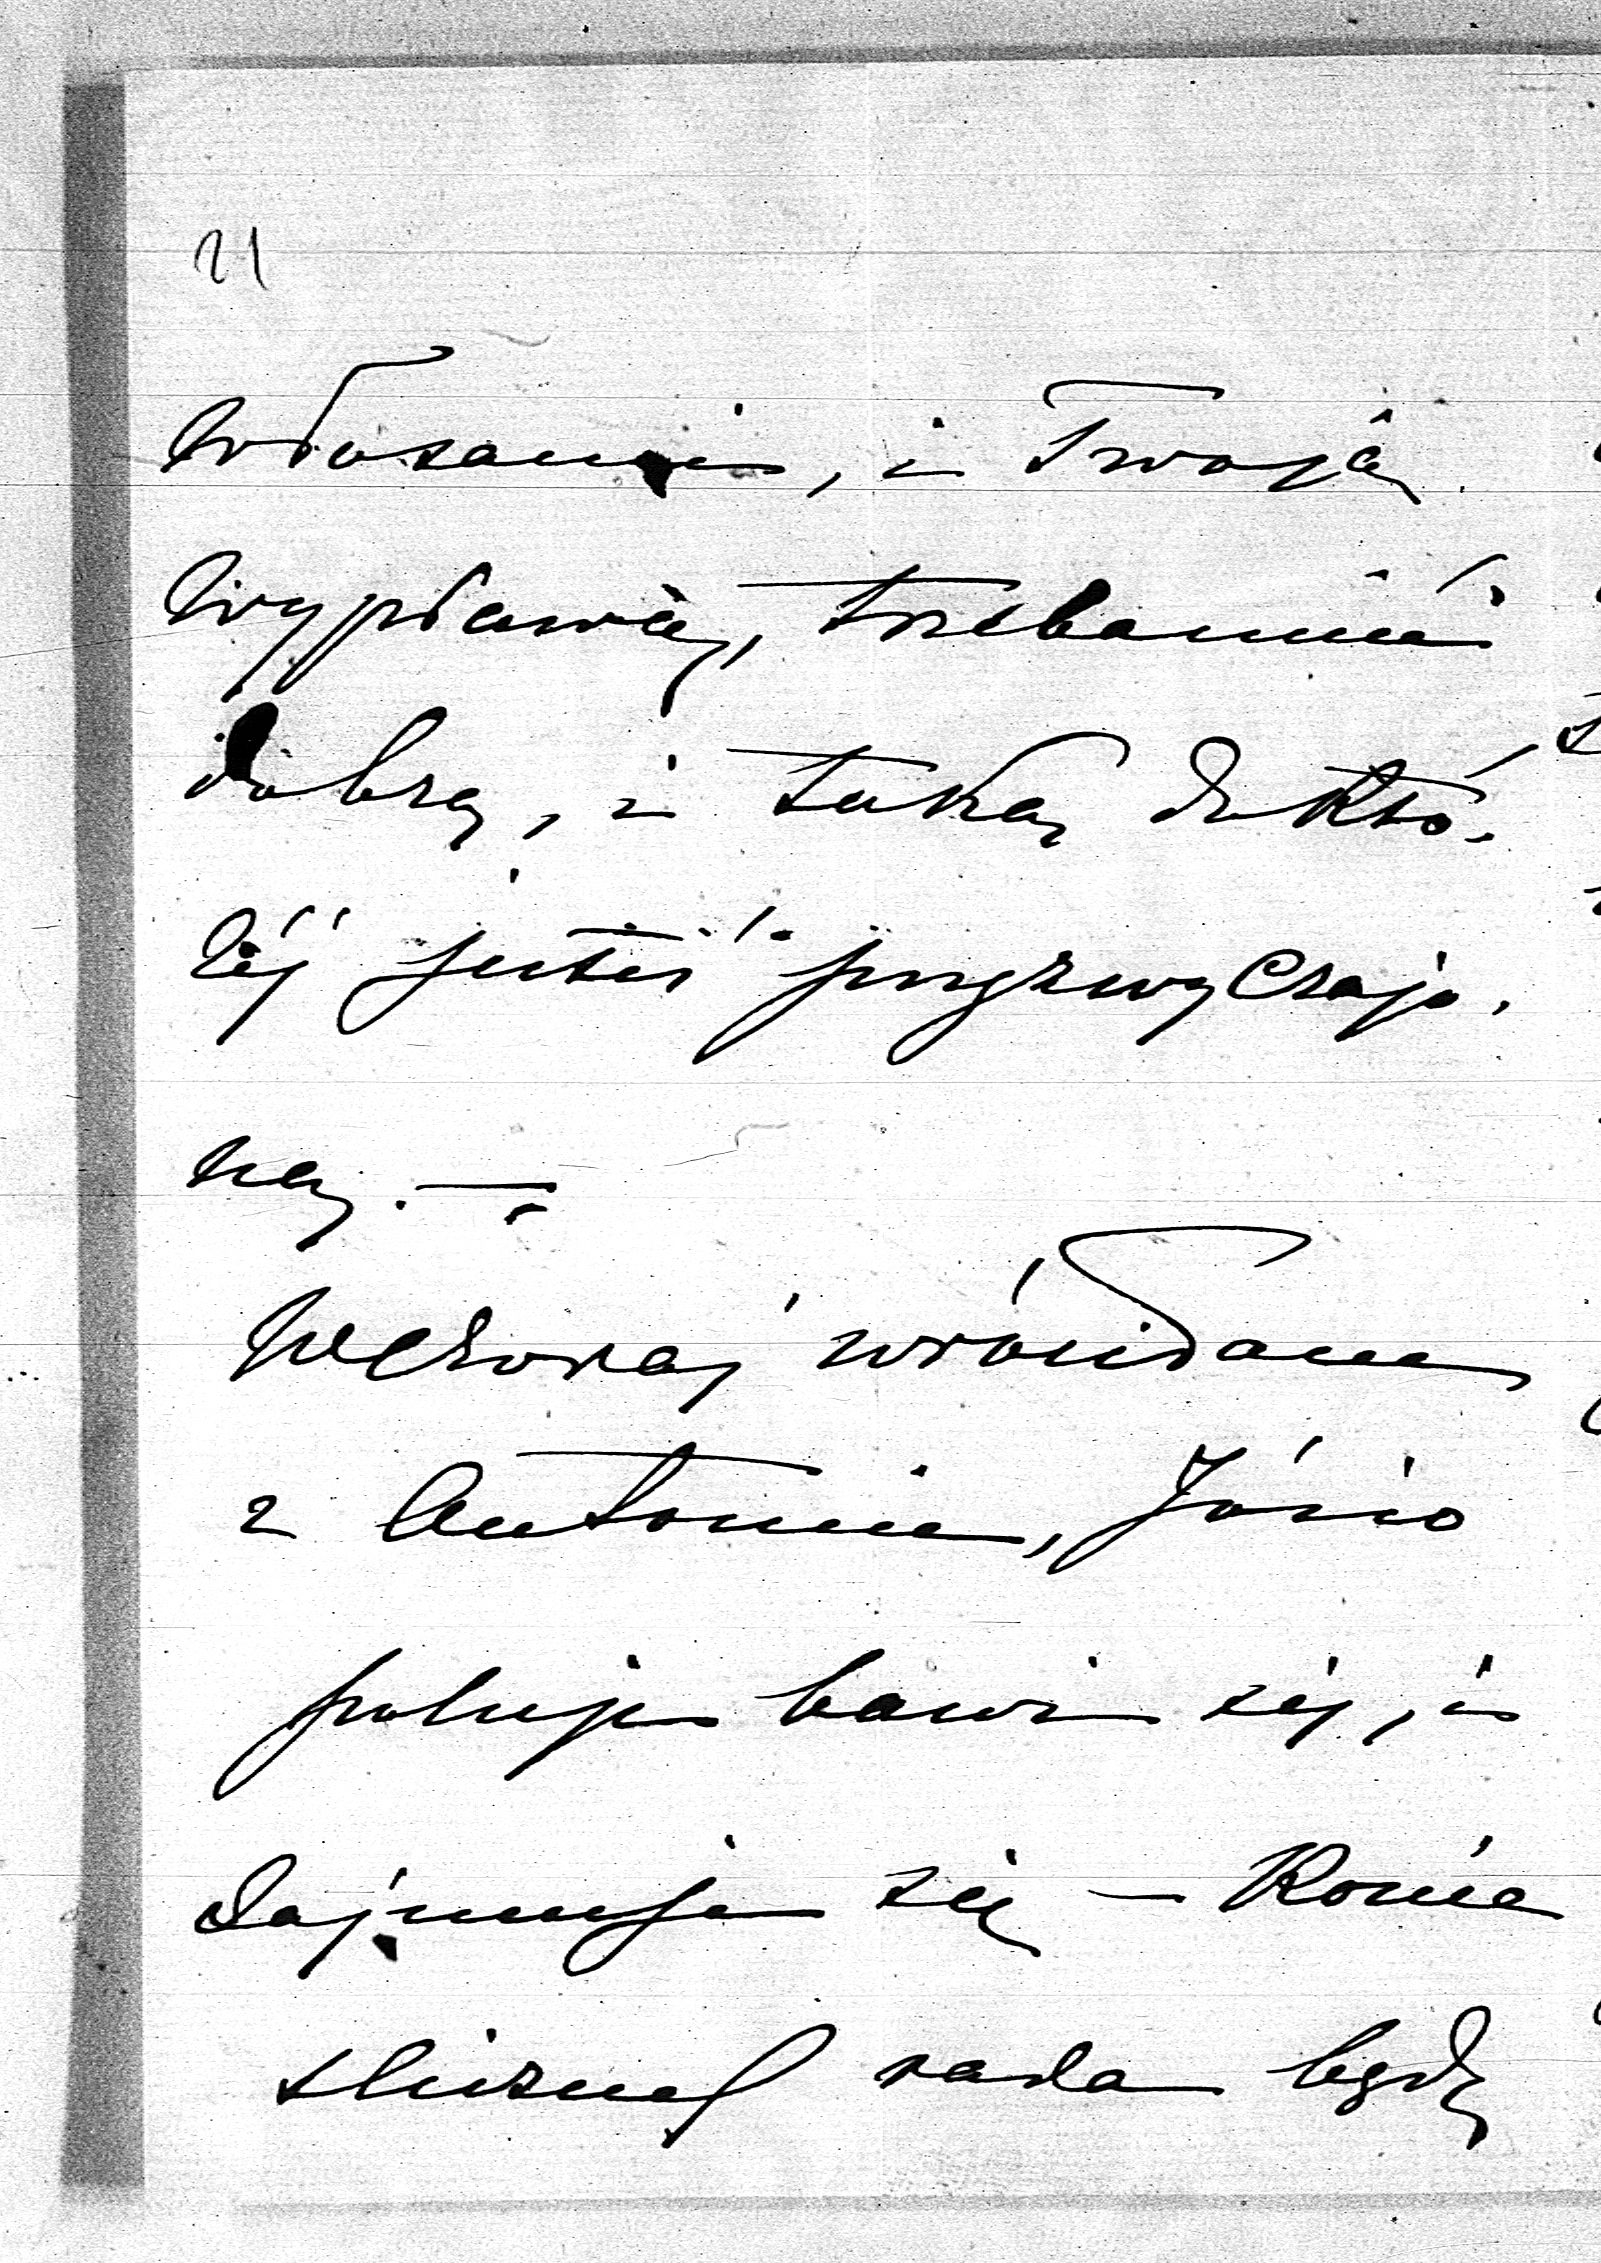 21
włosami, i Twoją
wyprawę, trzeba mieć
dobrą, i taką do któ-
réj jesteś przyzwyczajo-
ną. —
Wczoraj wróciłam
z Antonin, Józio
poluje bawi się, i
zajmuje się — Konie
śliczne rada będę